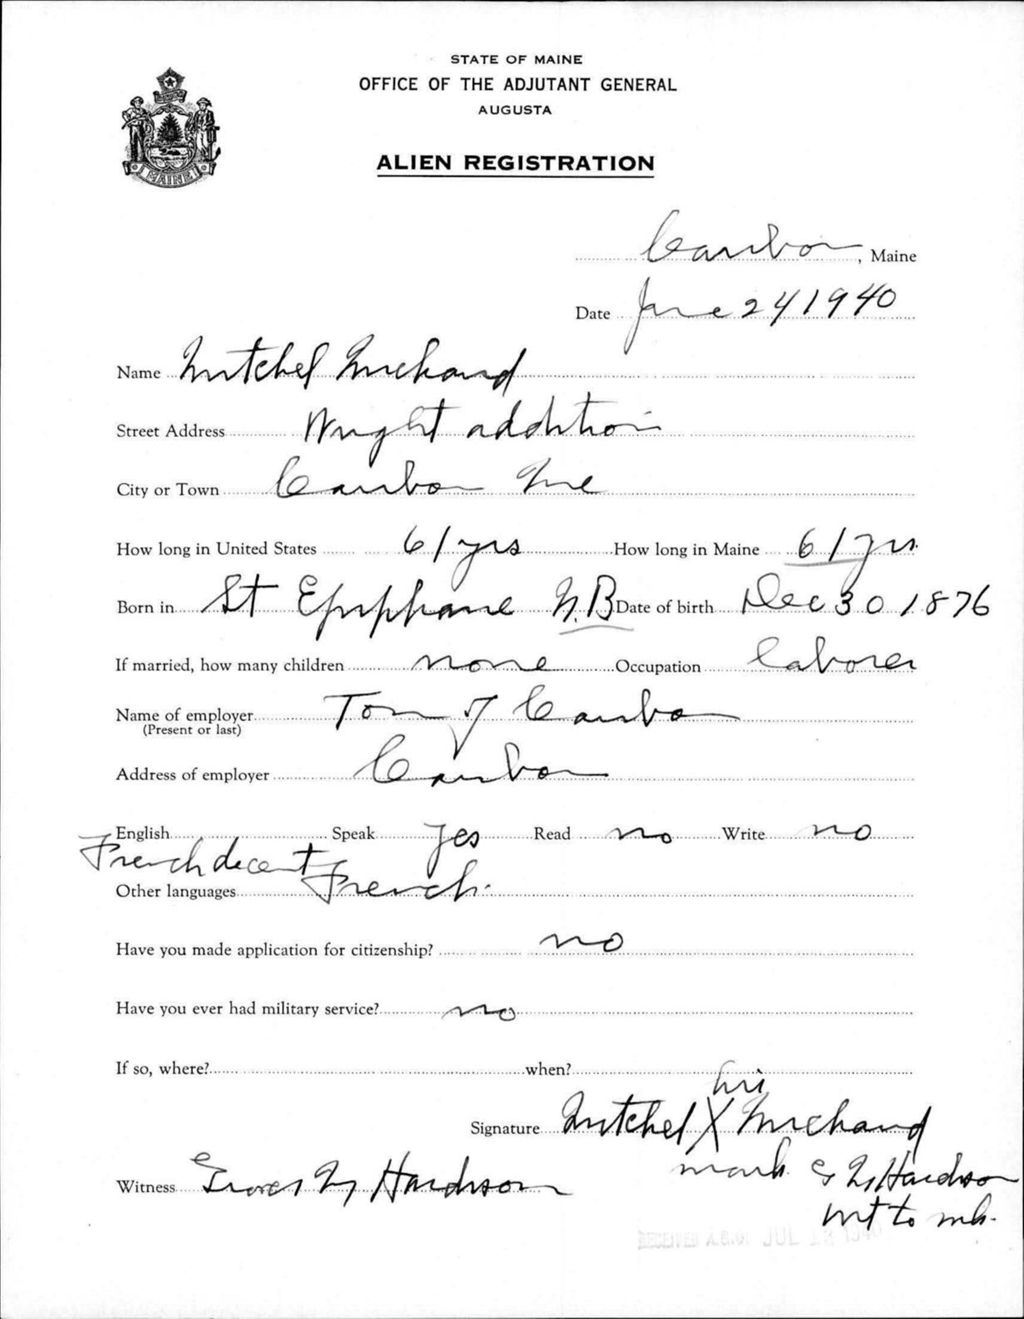 STATE OF MAINE
OFFICE OF THE ADJUTANT GENERAL
AUGUSTA
ALIEN REGISTRATION
MAINE
Caribou, Maine
Date June 24 1940
Name Mitchel Michaud
Street Address Wright addition
City or Town Caribou Me
How long in United States 61 yrs How long in Maine 61 yrs
Born in St Epiphane N.B Date of birth Dec 30 1876
If married, how many children none Occupation Laborer
Name of employer Town of Caribou
(Present or last)
Address of employer Caribou
English Speak Yes Read no Write no
French decent
Other languages French.
Have you made application for citizenship? no
Have you ever had military service? no
If so, where? when?
his
Signature Mitchel X Michaud
mark
Witness Hardison
Hardison
wit to mk.
RECEIVED A.G.O. JUL 1940